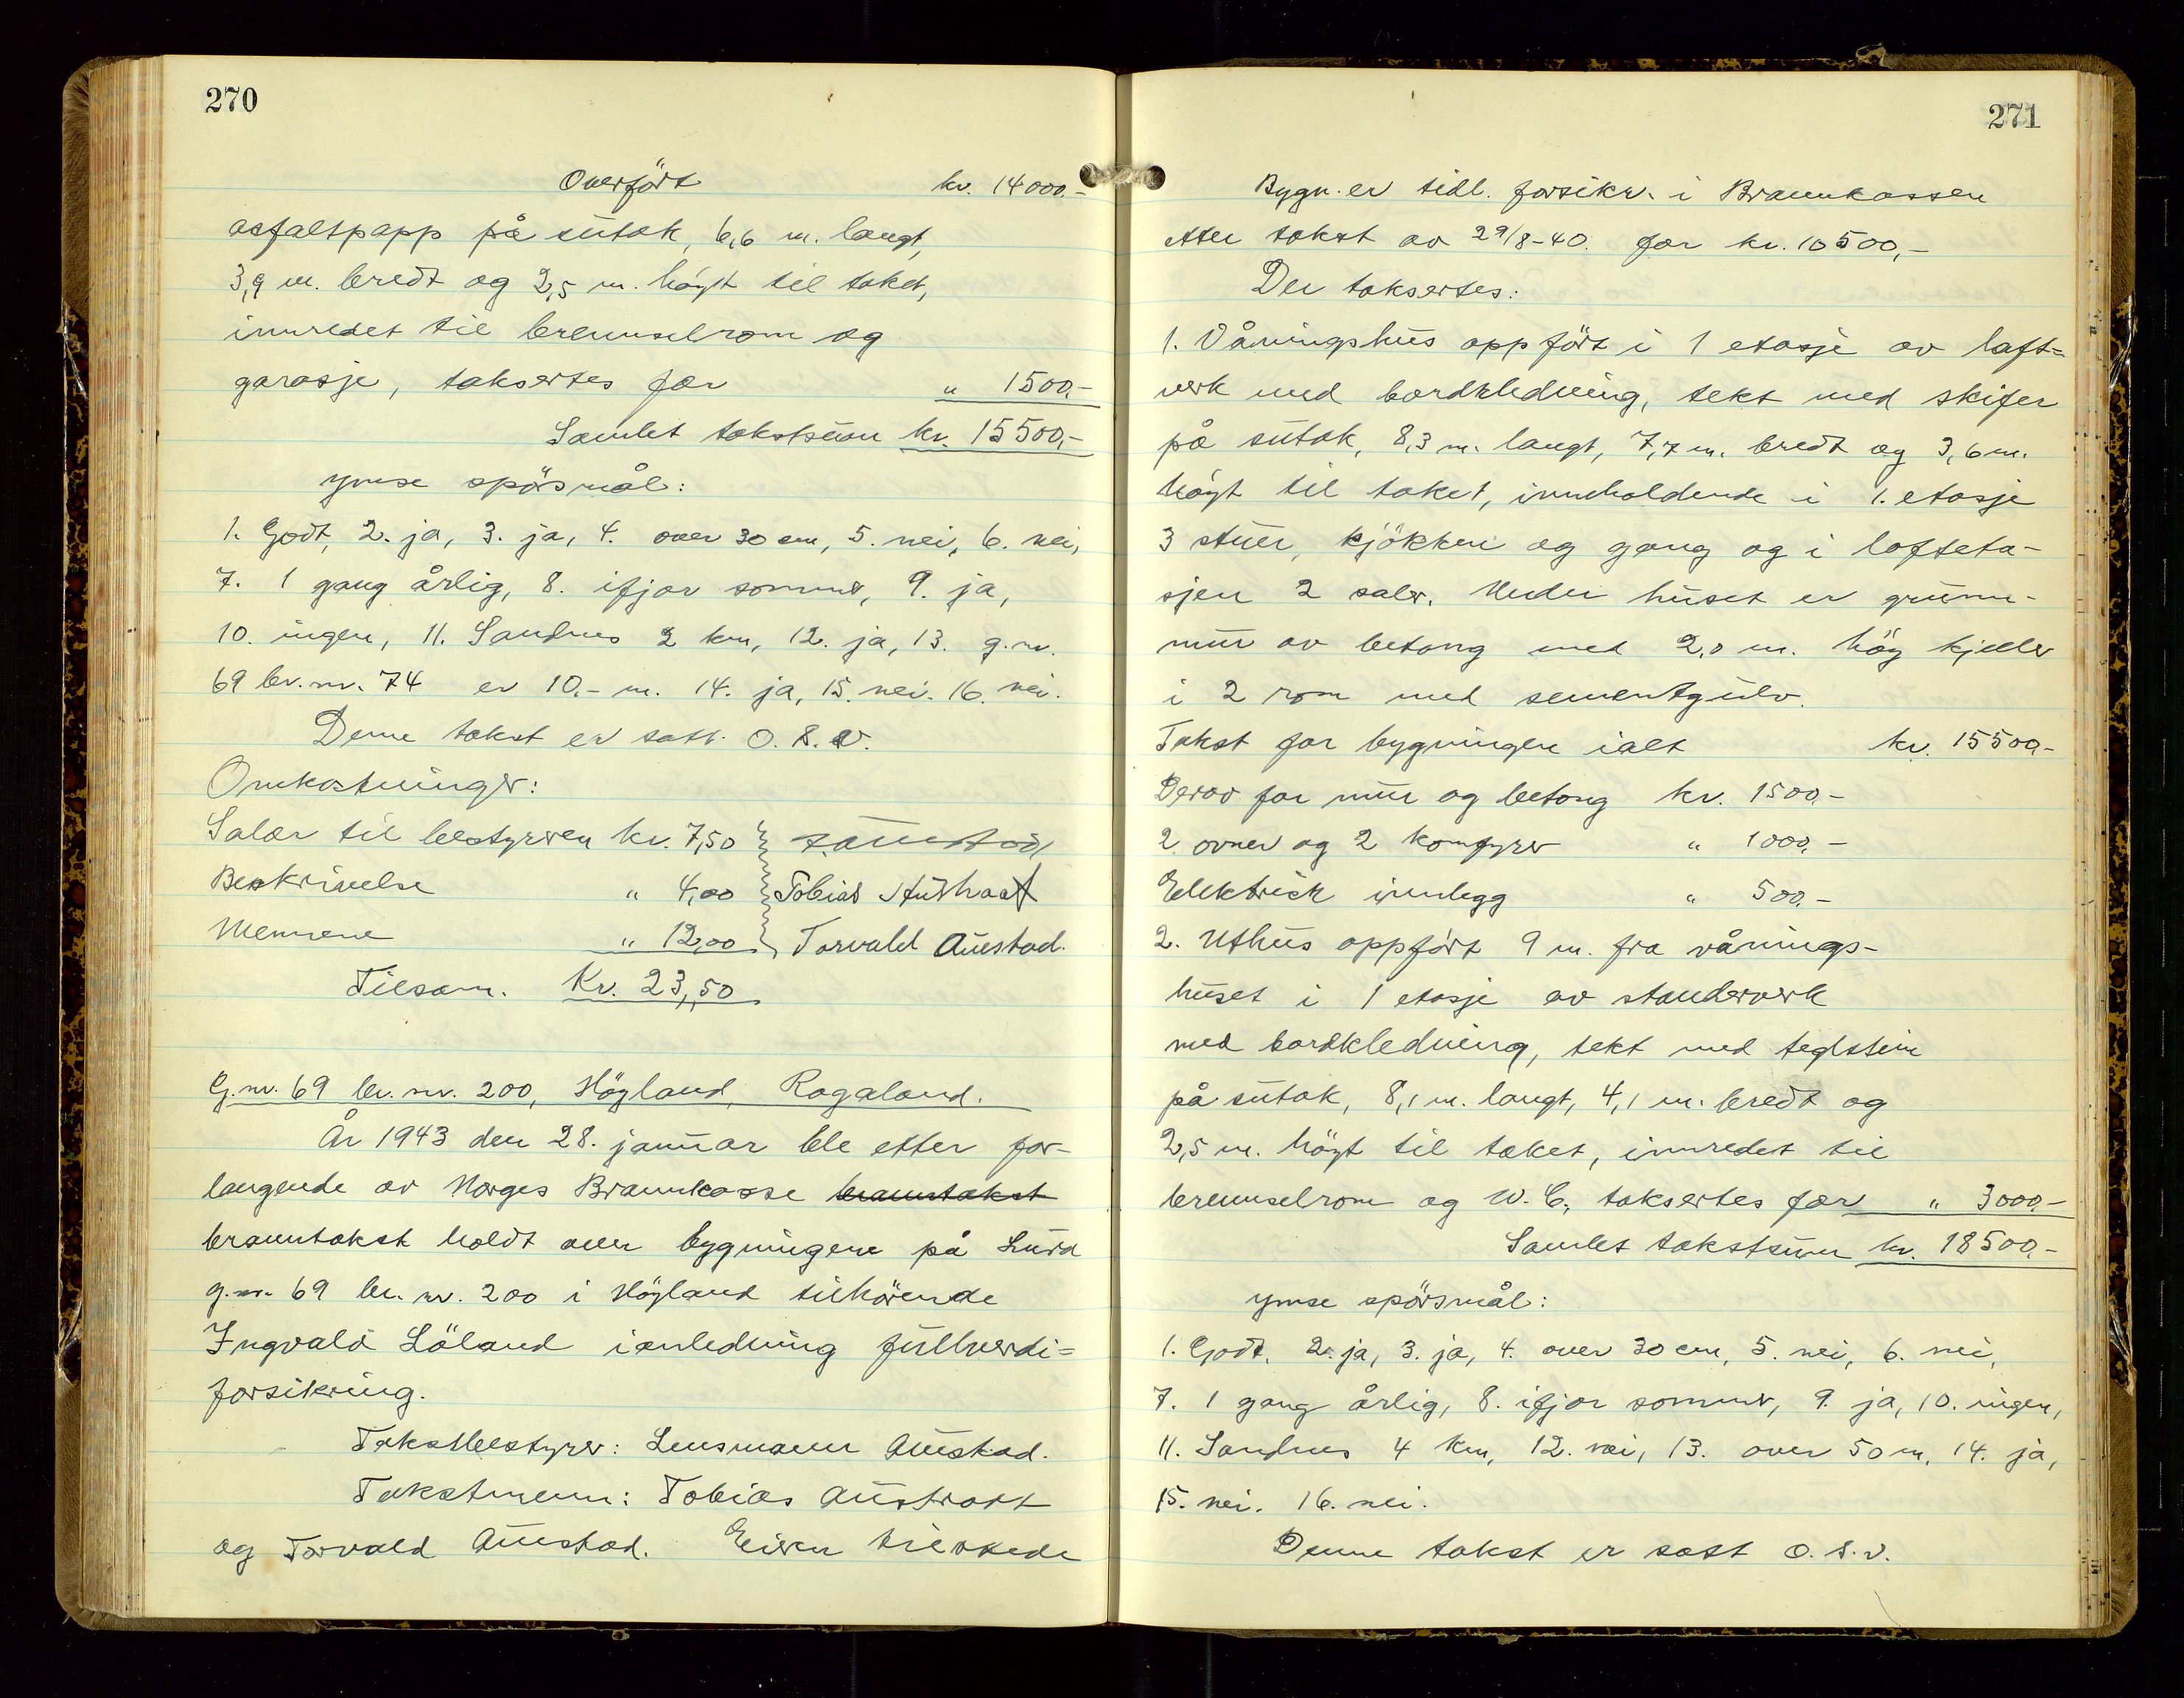 270
Overført kr. 14000,-
asfaltpapp på sutak, 6,6 m. langt,
3,9 m. bredt og 2,5 m. høyt til taket,
innredet til brennselrom og
garasje, takseres for " 1500,-
Samlet takstsum kr. 15500,-
ymse spörsmål:
1. Godt, 2. ja, 3. ja, 4. over 30 cm, 5. nei, 6. nei,
7. 1 gang årlig, 8. ifjor sommer, 9. ja,
10. ingen, 11. Sandnes 2 km, 12. ja, 13. g.nr.
69 br.nr. 74 er 10,- m. 14. ja, 15. nei. 16. nei.
Denne takst er satt O.S.V.
Omkostninger:
Salær til bestyreren kr. 7,50
Beskrivelse " 4,00 Tobias Austraat
Mennene " 12,00 Torvald Aüestad.
Tilsam. Kr. 23,50
G.nr. 69 br. nr. 200, Höyland, Rogaland.
År 1943 den 28. januar ble etter for-
langende av Norges Brannkasse branntakst
branntakst holdt over bygningene på Lura
g.nr. 69 br. nr. 200 i Höyland tilhörende
Ingvald Löland i anledning fullverdi=
forsikring.
Takstbestyrer: Lensmann Aüestad.
Takstmenn: Tobias Austratt
og Torvald Aüestad. Eieren tilstede
271
Bygn. er tidl. forsikr. i Brannkassen
etter takst av 29/8-40. for kr. 10500,-
Der taksertes:
1. Våningshus oppfört i 1 etasje av laft=
verk med bordkledning, tekt med skifer
på sutak, 8,3 m. langt, 7,7 m. bredt og 3,6 m.
höyt til taket, inneholdende i 1. etasje
3 stuer, kjökken og gang og i lofteta-
sjen 2 saler. Under huset er grunn-
mur av betong med 2,0 m. höy kjeller
i 2 rom med sementgulv.
Takst for bygningen ialt kr. 15500,-
Derav for mur og betong kr. 1500,-
2 ovner og 2 komfyrer " 1000,-
Elektrisk innlegg " 500,-
2. Uthus oppfört 9 m. fra vånings-
huset i 1 etasje av standerverk
med bordkledning, tekt med teglstein
på sutak, 8,1 m. langt, 4,1 m. bredt og
2,5 m. höyt til taket, innredet til
brennselrom og W.C., taksertes for " 3000,-
Samlet takstsum kr. 18500,-
ymse spörsmål:
1. Godt, 2. ja, 3. ja, 4. over 30 cm, 5. nei, 6. nei,
7. 1 gang årlig, 8. ifjor sommer, 9. ja, 10. ingen,
11. Sandnes 4 km, 12. nei, 13. over 50 m, 14. ja,
15. nei. 16. nei.
Denne takst er satt o.s.v.